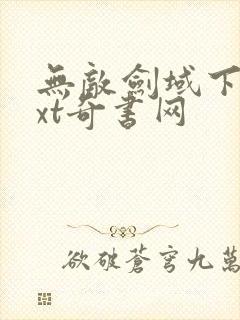 無敵劍域下
xt奇書网
欲破蒼穹九萬